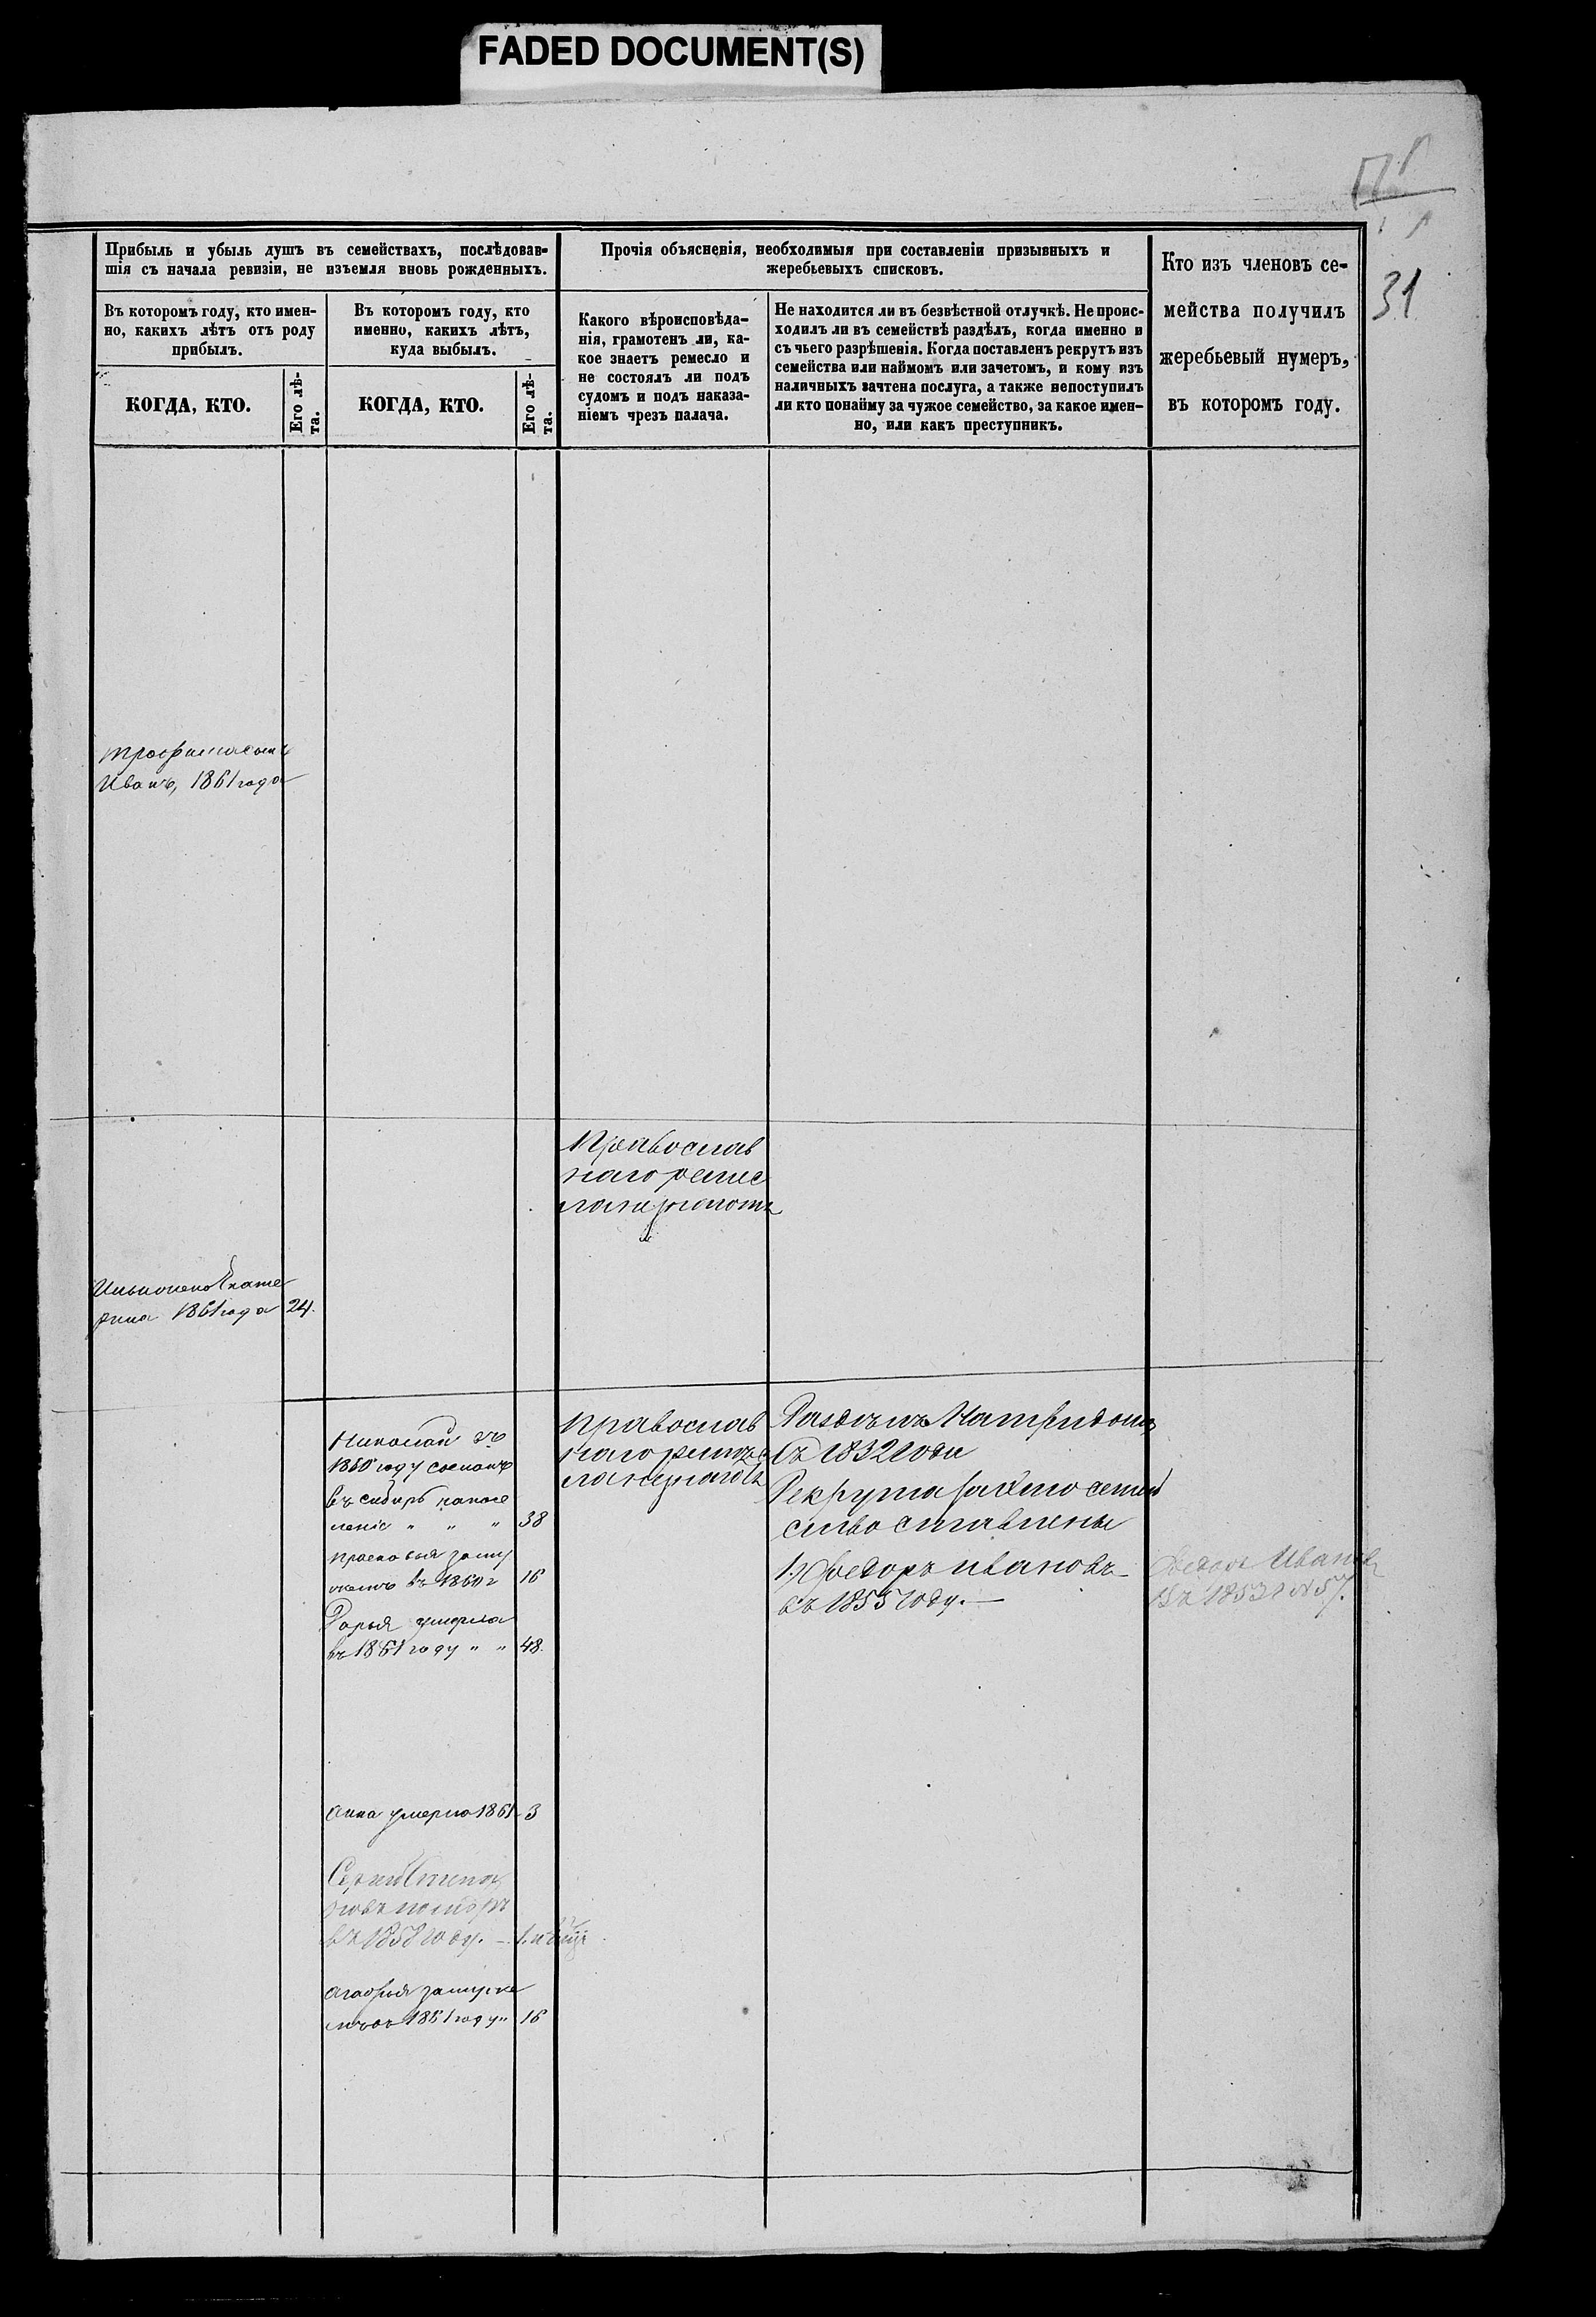 FADED DOCUMENT(S)
31
Прибыль и убыль душъ въ семействахъ, послѣдовав-
шія съ начала ревизіи, не изъемля вновь рожденныхъ.
Прочія объясненія, необходимыя при составленіи призывныхъ и
жеребьевыхъ списковъ.
Кто изъ членовъ се-
мейства получилъ
жеребьевый нумеръ,
въ которомъ году.
Въ которомъ году, кто имен-
но, какихъ лѣтъ отъ роду
прибылъ.
Въ которомъ году, кто
именно, какихъ лѣтъ,
куда выбылъ.
Какого вѣроисповѣда-
нія, грамотенъ ли, ка-
кое знаетъ ремесло и
не состоялъ ли подъ
судомъ и подъ наказа-
ніемъ чрезъ палача.
Не находится ли въ безвѣстной отлучкѣ. Не проис-
ходилъ ли въ семействѣ раздѣлъ, когда именно и
съ чьего разрѣшенія. Когда поставленъ рекрутъ изъ
семейства или наймомъ или зачетомъ, и кому изъ
наличныхъ зачтена послуга, а также непоступилъ
ли кто понайму за чужое семейство, за какое имен-
но, или какъ преступникъ.
КОГДА, КТО.
Его лѣ-
та.
КОГДА, КТО.
Его лѣ-
та.
Трофима сынъ
Иванъ, 1861 года
Православ
наго
Ильи жена Екате
рина 1861 года 24.
Николай въ
1860 году сосланъ
въ сибирь напосе
леніе " " " 38
Прасковья заму
жемъ въ 1860 г 16
Дарья умерла
въ 1861 году " " 48.
Анна умерла 1861 3
Сергей Степа
новъ
въ 1858 году. –
Агафья замуже
мъ въ 1861 году " 16
Православ
наго
Раздѣлъ
Съ 1832 года
Рекрута семей
ство ставлены
1.) Федоръ Ивановъ
въ 1855 году. —
Федоръ Ивановъ
Въ 1853 г № 57.